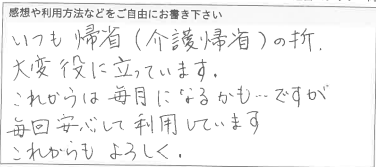 感想や利用方法などをご自由にお書き下さい
いつも帰省(介護帰省)の折.
大変役に立っています.
これからは毎月になるかも…ですが
毎回安心して利用しています
これからもよろしく.